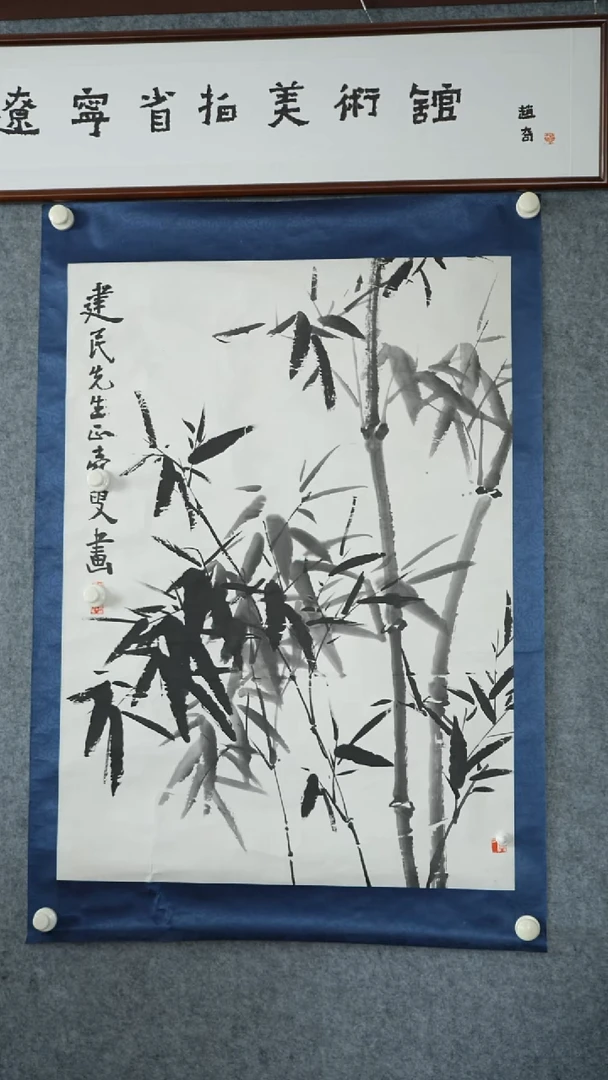 遼寧省拍美術館
趙奇
建民先生正 叟畫